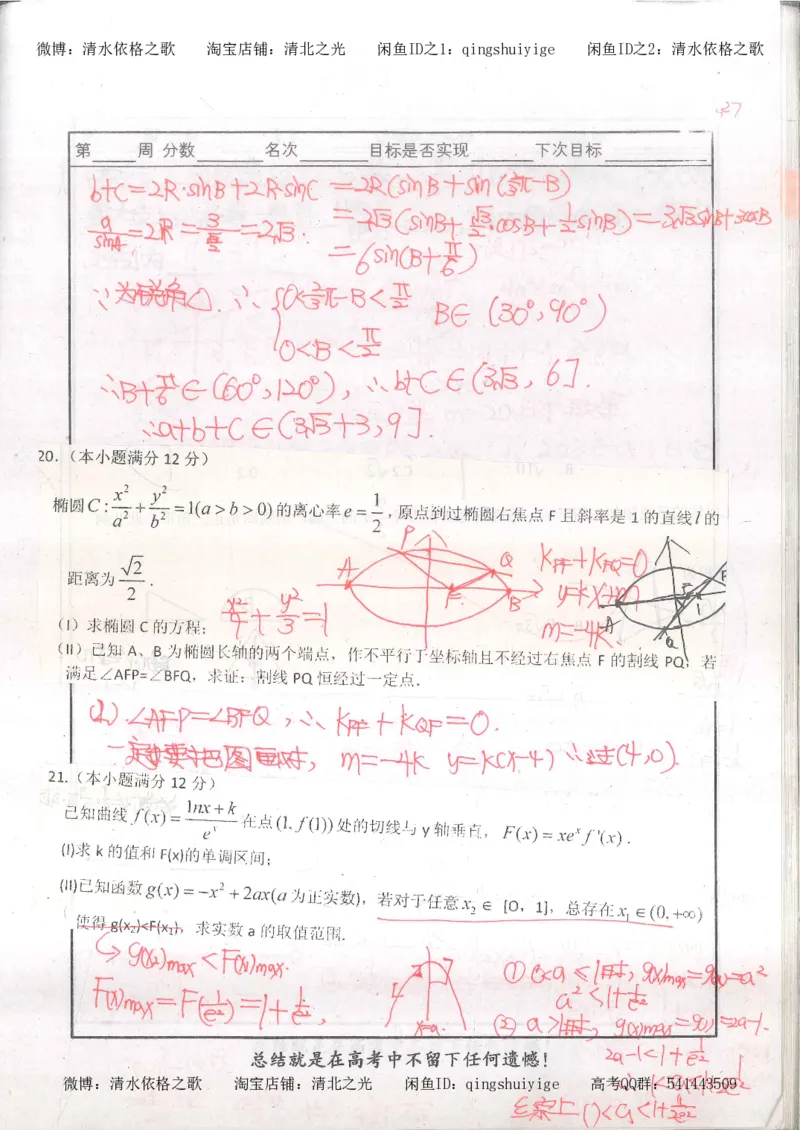 微博：清水依格之歌 淘宝店铺：清北之光 闲鱼ID之1：qingshuiyige 闲鱼ID之2：清水依格之歌
27
第____周 分数______ 名次______ 目标是否实现______ 下次目标________
b+c=2R·sinB+2R·sinC =2R(sinB+sin(2/3π-B))
a/sinA=2R=3/(√3/2)=2√3. =2√3(sinB+√3/2·cosB+1/2sinB)=3√3sinB+3cosB
=6sin(B+π/6)
∵为锐角△. ∴ {0<2/3π-B<π/2 B∈(30°,90°)
0<B<π/2
∴B+π/6∈(60°,120°), ∴b+c∈(3√3, 6].
∴a+b+c∈(3√3+3,9].
20.（本小题满分 12 分）
椭圆C: x²/a²+y²/b²=1(a>b>0)的离心率e=1/2，原点到过椭圆右焦点 F 且斜率是 1 的直线l的
距离为 √2/2 .
P
A Q F B
K_PF+K_FQ=0
y=kx+m
m=-4k.
x²/4+y²/3=1
A F P Q
（I）求椭圆 C 的方程；
（II）已知 A、B 为椭圆长轴的两个端点，作不平行于坐标轴且不经过右焦点 F 的割线 PQ，若
满足∠AFP=∠BFQ，求证：割线 PQ 恒经过一定点.
(2) ∠AFP=∠BFQ, ∴ K_PF+K_QF=0.
一定要把图画对, m=-4k y=k(x-4) ∴过(4,0).
21.（本小题满分 12 分）
已知曲线 f(x)=(lnx+k)/eˣ 在点(1,f(1))处的切线与 y 轴垂直，F(x)=xeˣf'(x).
(I)求 k 的值和 F(x)的单调区间；
(II)已知函数g(x)=-x²+2ax(a为正实数)，若对于任意x₂∈ [0，1]，总存在x₁∈(0,+∞)
使得 g(x₂)<F(x₁)，求实数 a 的取值范围.
↳ g(x₂)max<F(x₁)max.
F(x)max=F(1/e²)=1+1/e²,
x=a.
①0<a≤1时, g(x)max=g(a)=a²
a²<1+1/e²
②a>1时, g(x)max=g(1)=2a-1.
2a-1<1+1/e²
总结就是在高考中不留下任何遗憾！
微博：清水依格之歌 淘宝店铺：清北之光 闲鱼ID：qingshuiyige 高考QQ群：541443509
综上 0<a<1+1/2e²